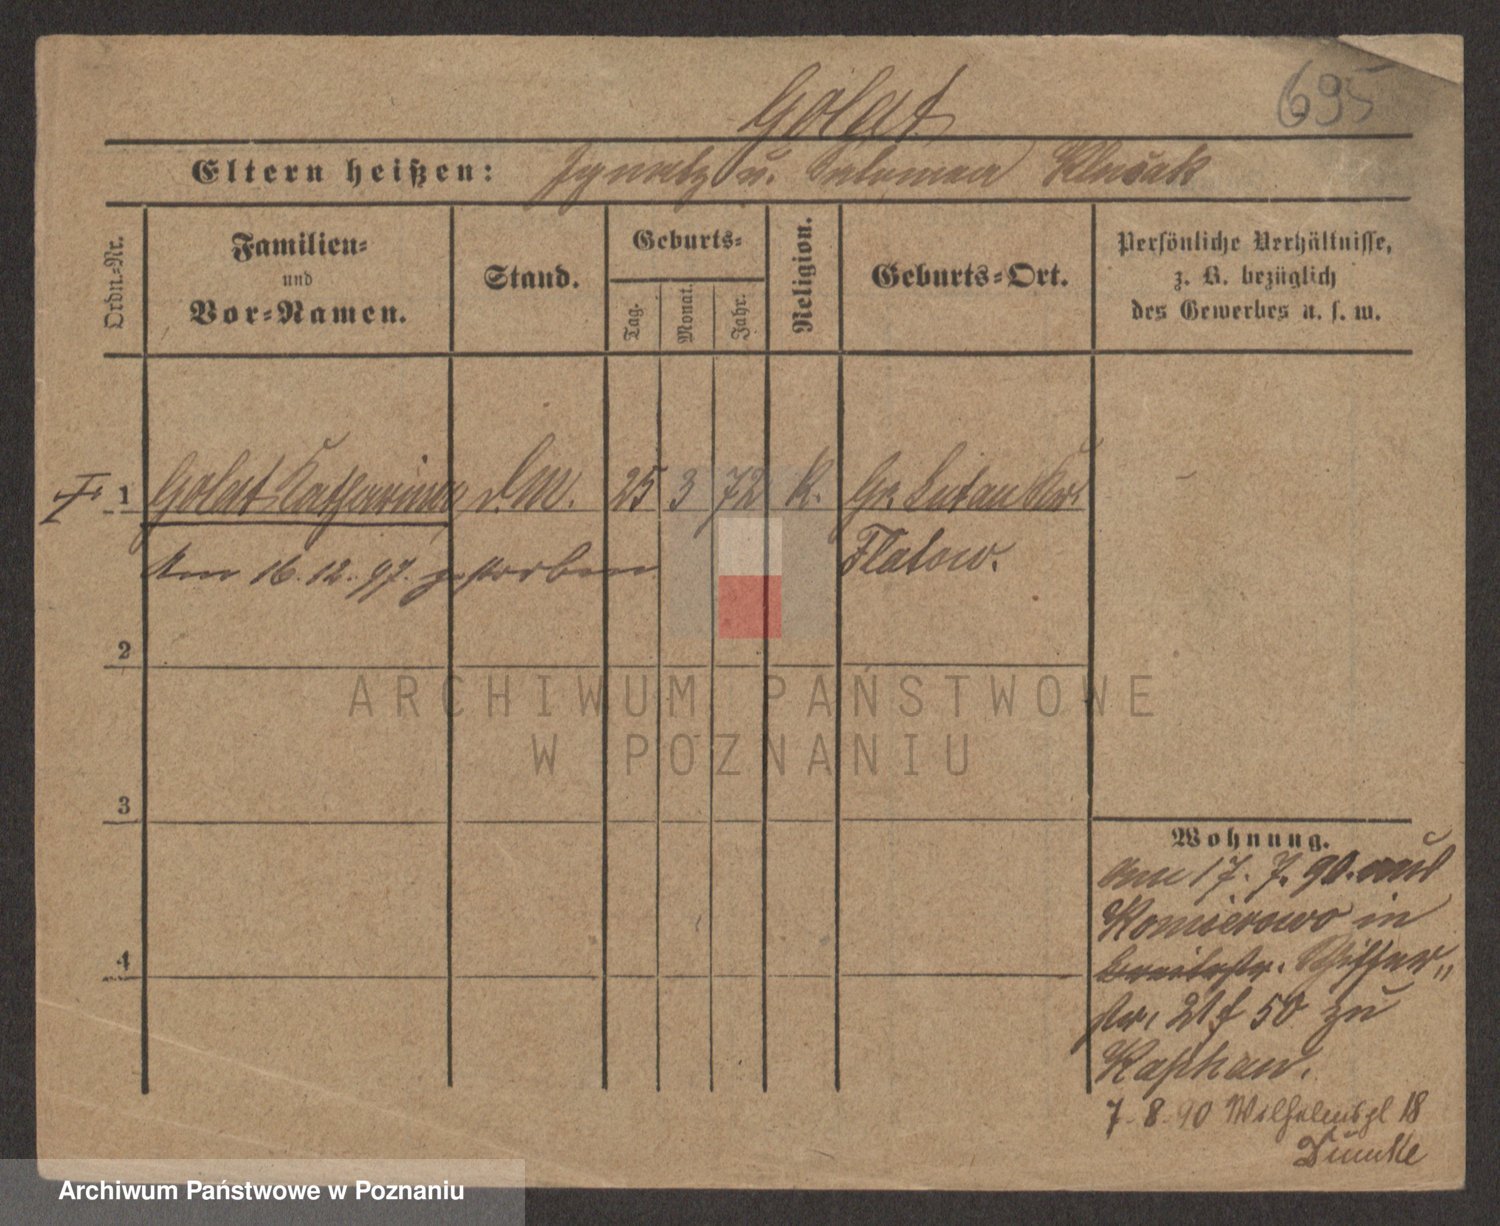 Golat
695
Eltern heißen: Ignatz u. Salomea Klusak
Ordn.=Nr.
Familien=
und
Vor=Namen.
Stand.
Geburts=
Tag.
Monat.
Jahr.
Religion.
Geburts=Ort.
Persönliche Verhältnisse,
z. B. bezüglich
des Gewerbes u. s. w.
1 Golat Katharina d.M. 25 3 72 K. Gr. Lutau Kr.
Am 16.12.97. gestorben Flatow.
2
ARCHIWUM PAŃSTWOWE
W POZNANIU
3
Wohnung.
Am 17.7.90. aus
Komierowo in
Breitestr. Schiffer„
str. 21 f 50 zu
Kaphan.
4
7.8.90 Wilhelmspl 18
Archiwum Państwowe w Poznaniu